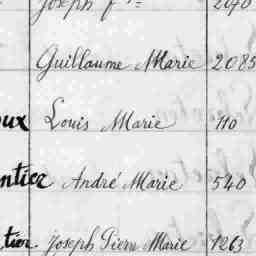 Joseph fs 2040
Guillaume Marie 2085
oux Louis Marie 110
ntier André Marie 540
tier Joseph Pierre Marie 1263